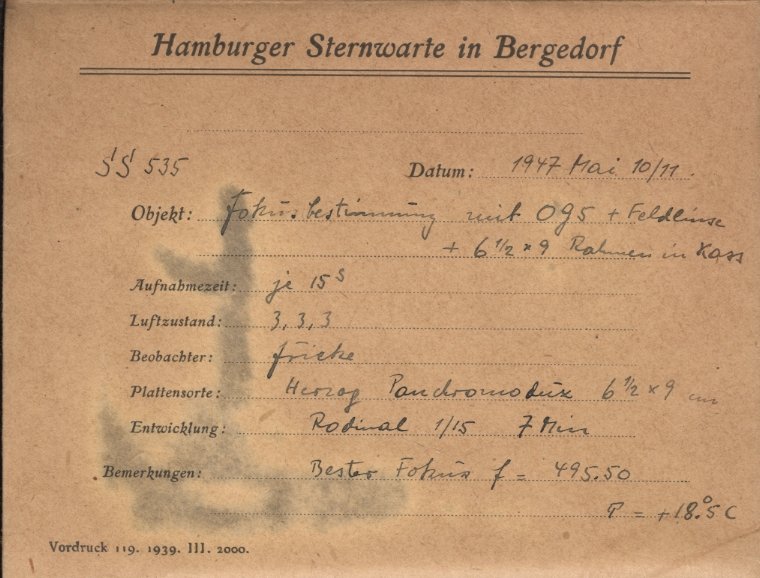 Hamburger Sternwarte in Bergedorf
SS 535
Datum: 1947 Mai 10/11.
Objekt: Fokusbestimmung mit OG5 + Feldlinse
+ 6 1/2 × 9 Rahmen in Kass
Aufnahmezeit: je 15 s
Luftzustand: 3, 3, 3
Beobachter: Fricke
Plattensorte: Herzog 6 1/2 × 9 cm
Entwicklung: Rodinal 1/15 7 Min
Bemerkungen: Bester Fokus f = 495.50
T = +18.°5 C
Vordruck 119. 1939. III. 2000.